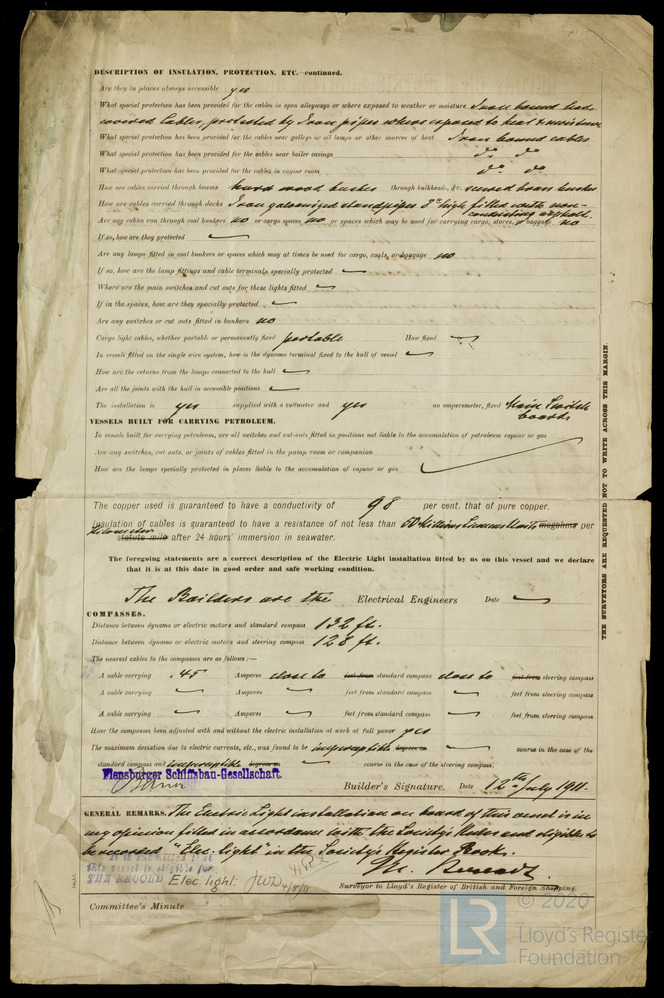 DESCRIPTION OF INSULATION, PROTECTION, ETC.—continued.
Are they in places always accessible yes
What special protection has been provided for the cables in open alleyways or where exposed to weather or moisture Iron bound lead-
covered Cables, protected by Iron pipes where exposed to heat & moisture
What special protection has been provided for the cables near galleys or oil lamps or other sources of heat Iron bound cables
What special protection has been provided for the cables near boiler casings do do
What special protection has been provided for the cables in engine room do do
How are cables carried through beams hard wood bushes through bulkheads, &c. screwed brass bushes
How are cables carried through decks Iron galvanized standpipes 8" high filled with non-
conducting asphalt.
Are any cables run through coal bunkers no or cargo spaces no or spaces which may be used for carrying cargo, stores, or baggage no
If so, how are they protected
Are any lamps fitted in coal bunkers or spaces which may at times be used for cargo, coals, or baggage no
If so, how are the lamp fittings and cable terminals specially protected
Where are the main switches and cut outs for these lights fitted
If in the spaces, how are they specially protected
Are any switches or cut outs fitted in bunkers no
Cargo light cables, whether portable or permanently fixed portable How fixed
In vessels fitted on the single wire system, how is the dynamo terminal fixed to the hull of vessel
How are the returns from the lamps connected to the hull
Are all the joints with the hull in accessible positions
The installation is yes supplied with a voltmeter and yes an amperemeter, fixed Main Switch
boards
VESSELS BUILT FOR CARRYING PETROLEUM.
In vessels built for carrying petroleum, are all switches and cut-outs fitted in positions not liable to the accumulation of petroleum vapour or gas
Are any switches, cut outs, or joints of cables fitted in the pump room or companion
How are the lamps specially protected in places liable to the accumulation of vapour or gas
The copper used is guaranteed to have a conductivity of 98 per cent. that of pure copper.
Insulation of cables is guaranteed to have a resistance of not less than 50 Millions Siemens Units megohms per
Kilometer
statute mile after 24 hours' immersion in seawater.
The foregoing statements are a correct description of the Electric Light installation fitted by us on this vessel and we declare
that it is at this date in good order and safe working condition.
The Builders are the Electrical Engineers Date
COMPASSES.
Distance between dynamo or electric motors and standard compass 132 ft.
Distance between dynamo or electric motors and steering compass 128 ft.
The nearest cables to the compasses are as follows:—
A cable carrying .45 Amperes close to feet from standard compass close to feet from steering compass
A cable carrying Amperes feet from standard compass feet from steering compass
A cable carrying Amperes feet from standard compass feet from steering compass
Have the compasses been adjusted with and without the electric installation at work at full power yes
The maximum deviation due to electric currents, etc., was found to be imperceptible degrees on course in the case of the
standard compass and imperceptible degrees on course in the case of the steering compass.
Flensburger Schiffsbau-Gesellschaft.
Builder's Signature. Date 12th July 1911.
GENERAL REMARKS. The Electric Light installation on board of this vessel is in
my opinion fitted in accordance with the Society's Rules and eligible to
be recorded "Elec. light" in the Society's Register Book.
It is submitted that
this vessel is eligible for
THE RECORD Elec light. JWD 4/8/11
Surveyor to Lloyd's Register of British and Foreign Shipping.
Committee's Minute
THE SURVEYORS ARE REQUESTED NOT TO WRITE ACROSS THIS MARGIN.
LR
© 2020
Lloyd's Register
Foundation